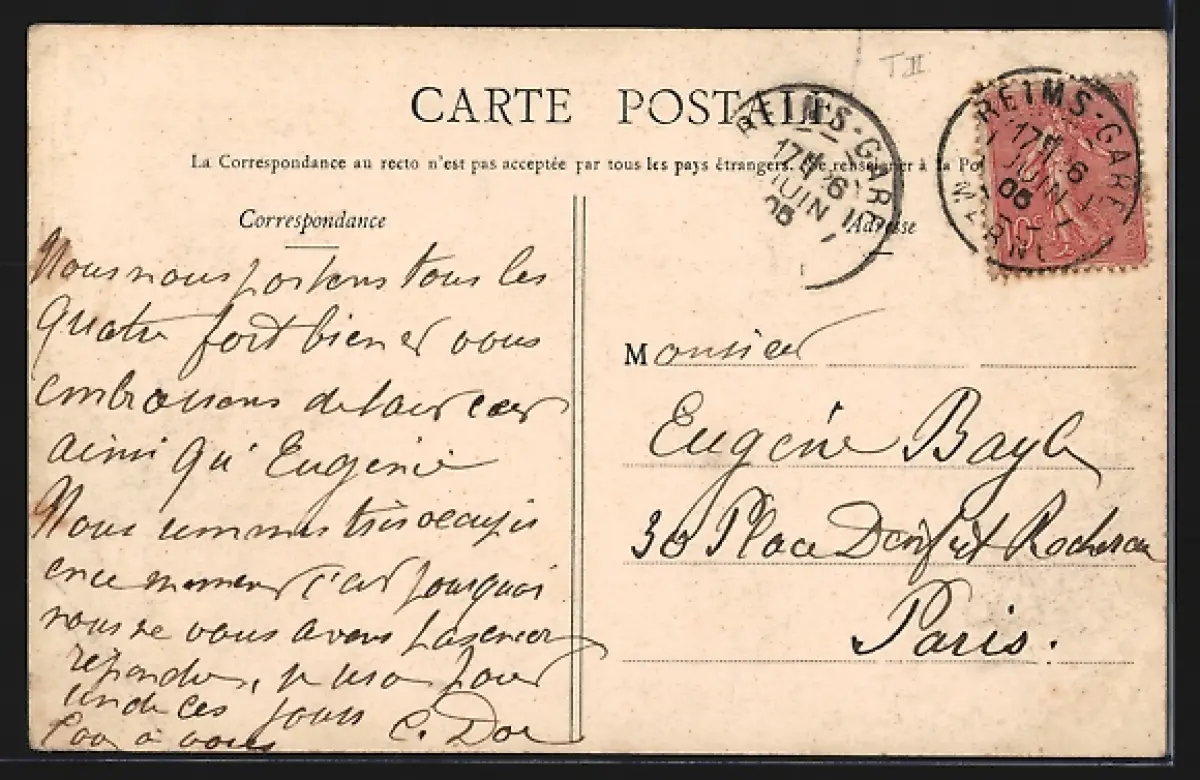 T II
CARTE POSTALE
La Correspondance au recto n'est pas acceptée par tous les pays étrangers. (Se renseigner à la Po
Correspondance
Adresse
REIMS-GARE
17 6
JUIN
05
REIMS-GARE
17 6
JUIN
05
MARNE
10c
Nous nous portons tous les
quatre fort bien et vous
embrassons de tout cœur
ainsi qu'Eugénie
Nous sommes très occupés
en ce moment c'est pourquoi
nous ne vous avons pas encore
répondu, ce sera pour
un de ces jours
à vous C.
Monsieur
Eugène Bayle
30 Place Denfert Rochereau
Paris.